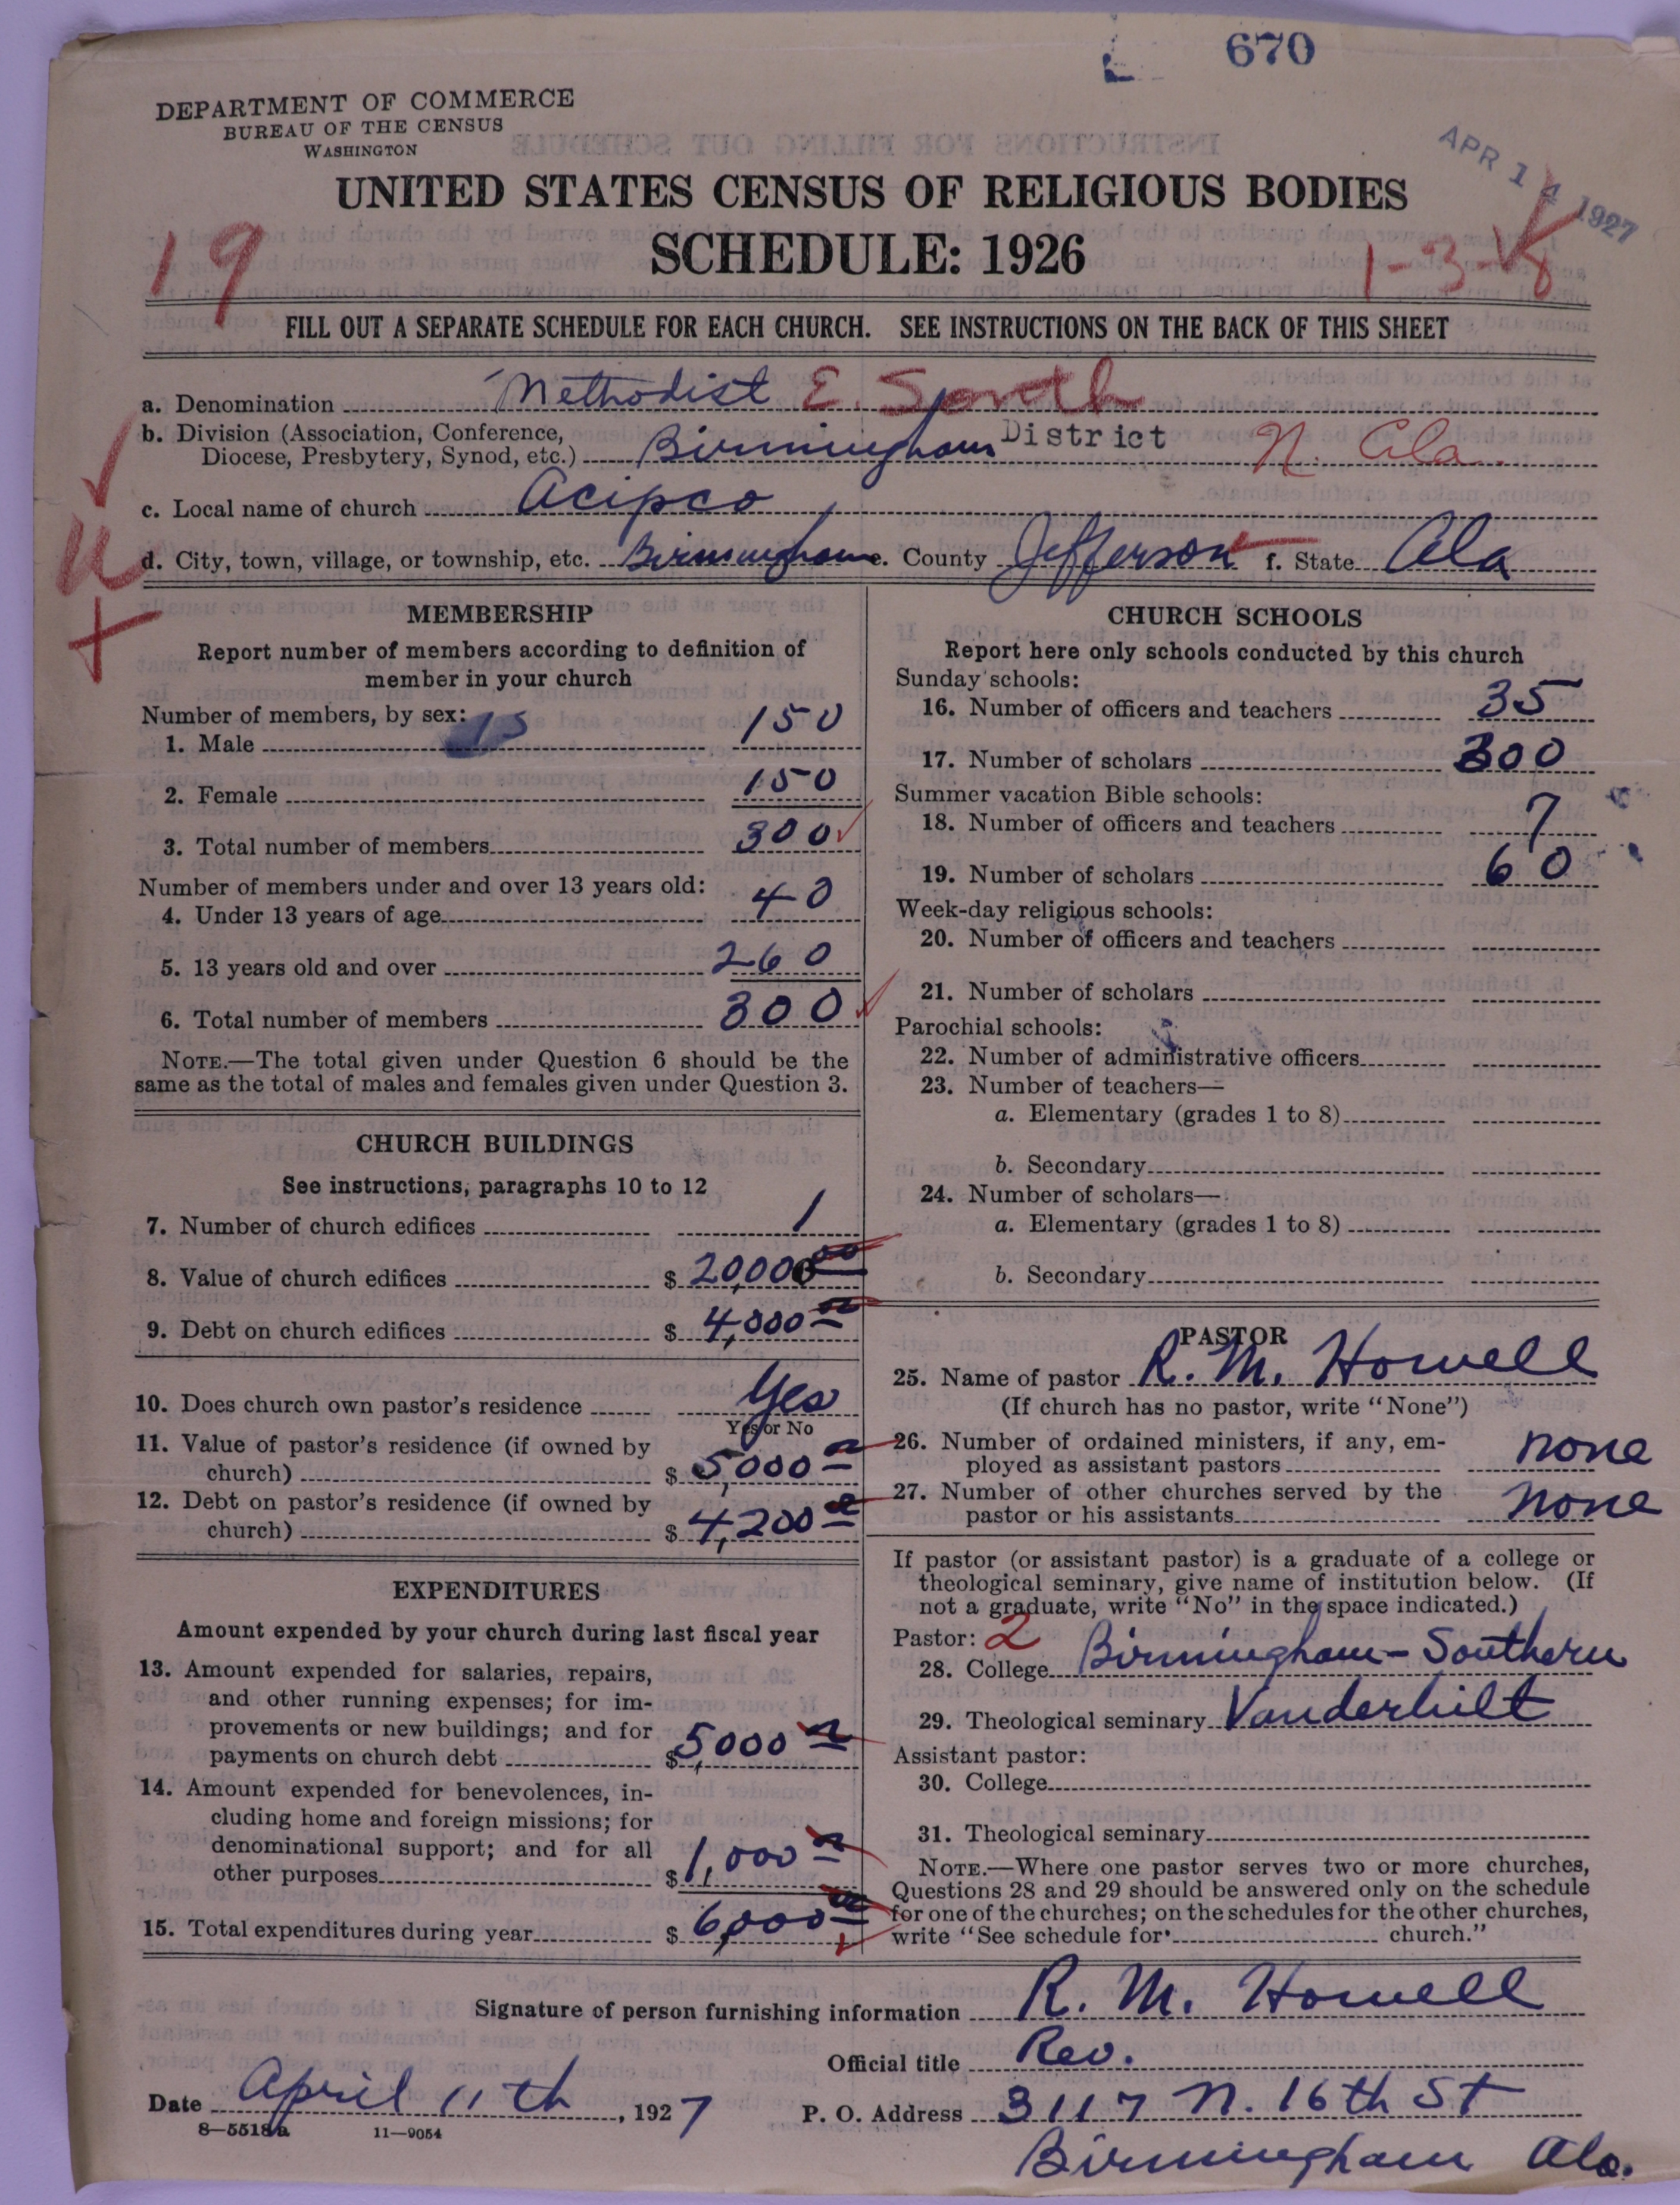 670
DEPARTMENT OF COMMERCE
BUREAU OF THE CENSUS
WASHINGTON
APR 14 1927
UNITED STATES CENSUS OF RELIGIOUS BODIES
SCHEDULE: 1926
19
1-3-
FILL OUT A SEPARATE SCHEDULE FOR EACH CHURCH. SEE INSTRUCTIONS ON THE BACK OF THIS SHEET
a. Denomination Methodist E. South
b. Division (Association, Conference,
Diocese, Presbytery, Synod, etc.) Birmingham District N. Ala.
c. Local name of church Acipco
d. City, town, village, or township, etc. Birmingham e. County Jefferson f. State Ala
MEMBERSHIP
Report number of members according to definition of
member in your church
Number of members, by sex:
1. Male 15 150
2. Female 150
3. Total number of members 300
Number of members under and over 13 years old:
4. Under 13 years of age 40
5. 13 years old and over 260
6. Total number of members 300
NOTE.—The total given under Question 6 should be the
same as the total of males and females given under Question 3.
CHURCH BUILDINGS
See instructions, paragraphs 10 to 12
7. Number of church edifices 1
8. Value of church edifices $ 20,000 00
9. Debt on church edifices $ 4,000 00
10. Does church own pastor's residence Yes
Yes or No
11. Value of pastor's residence (if owned by
church) $ 5,000 00
12. Debt on pastor's residence (if owned by
church) $ 4,200 00
EXPENDITURES
Amount expended by your church during last fiscal year
13. Amount expended for salaries, repairs,
and other running expenses; for im-
provements or new buildings; and for
payments on church debt $ 5,000 00
14. Amount expended for benevolences, in-
cluding home and foreign missions; for
denominational support; and for all
other purposes $ 1,000 00
15. Total expenditures during year $ 6,000 00
CHURCH SCHOOLS
Report here only schools conducted by this church
Sunday schools:
16. Number of officers and teachers 35
17. Number of scholars 300
Summer vacation Bible schools:
18. Number of officers and teachers 7
19. Number of scholars 60
Week-day religious schools:
20. Number of officers and teachers
21. Number of scholars
Parochial schools:
22. Number of administrative officers
23. Number of teachers—
a. Elementary (grades 1 to 8)
b. Secondary
24. Number of scholars—
a. Elementary (grades 1 to 8)
b. Secondary
PASTOR
25. Name of pastor R. M. Howell
(If church has no pastor, write "None")
26. Number of ordained ministers, if any, em-
ployed as assistant pastors none
27. Number of other churches served by the
pastor or his assistants none
If pastor (or assistant pastor) is a graduate of a college or
theological seminary, give name of institution below. (If
not a graduate, write "No" in the space indicated.)
Pastor: 2
28. College Birmingham-Southern
29. Theological seminary Vanderbilt
Assistant pastor:
30. College
31. Theological seminary
NOTE.—Where one pastor serves two or more churches,
Questions 28 and 29 should be answered only on the schedule
for one of the churches; on the schedules for the other churches,
write "See schedule for church."
Signature of person furnishing information R. M. Howell
Official title Rev.
Date April 11th, 1927
P. O. Address 3117 N. 16th St
Birmingham Ala.
8-5518a 11-9054